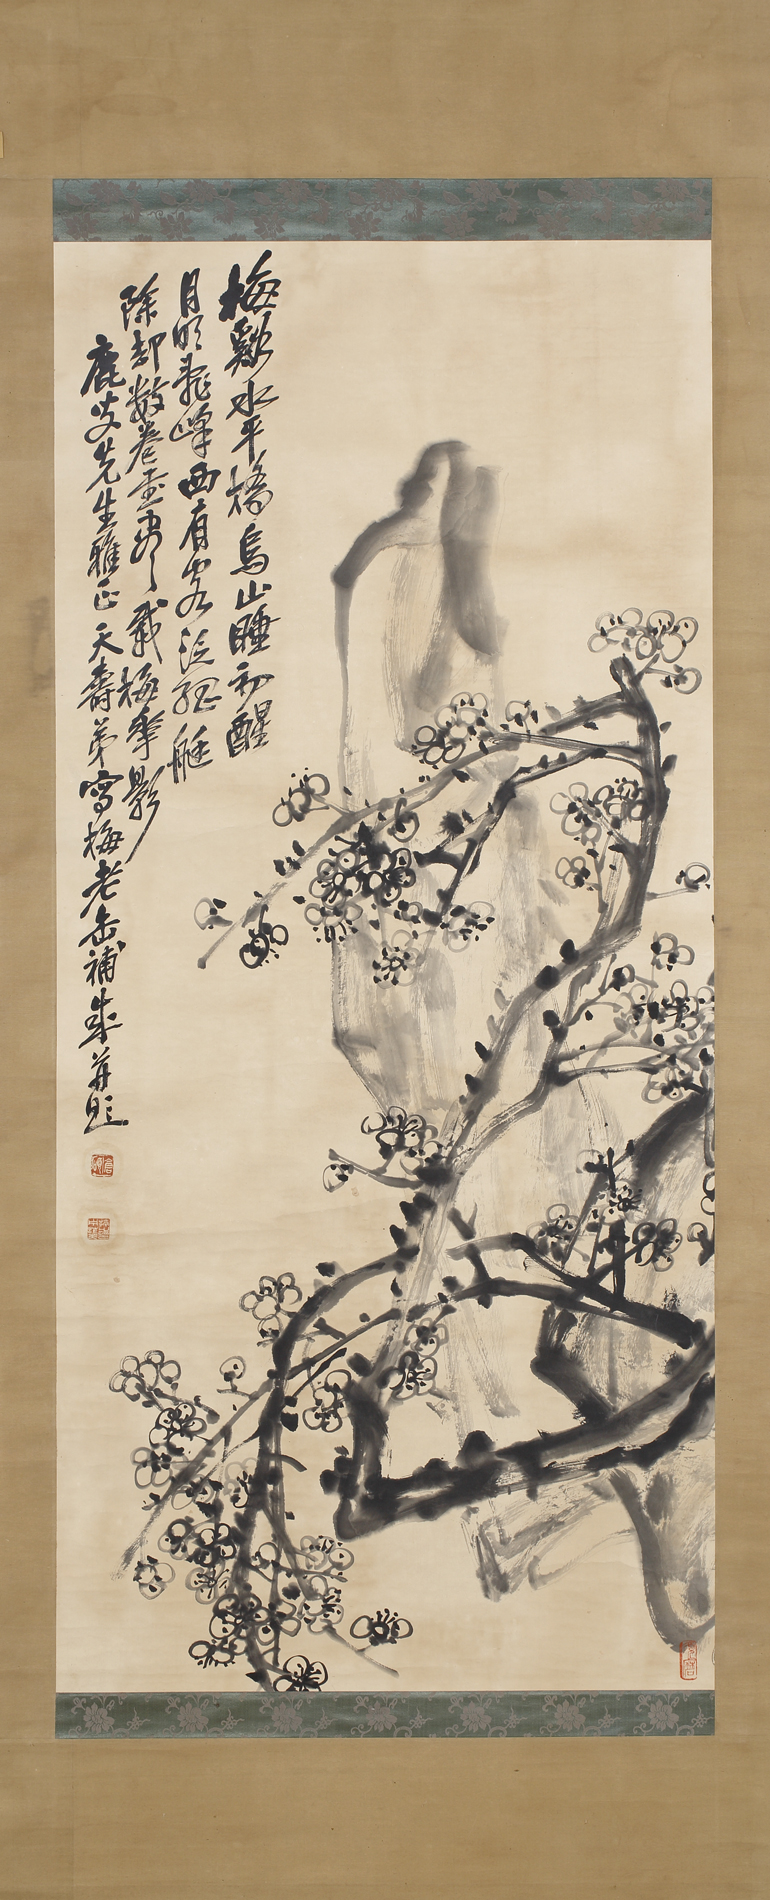 梅谿水平橋烏山睡初醒
月明亂峰西有客泛孤艇
除却數卷書盡載梅華影
鹿叟先生雅正天壽弟寫梅老缶補成并題
倉碩